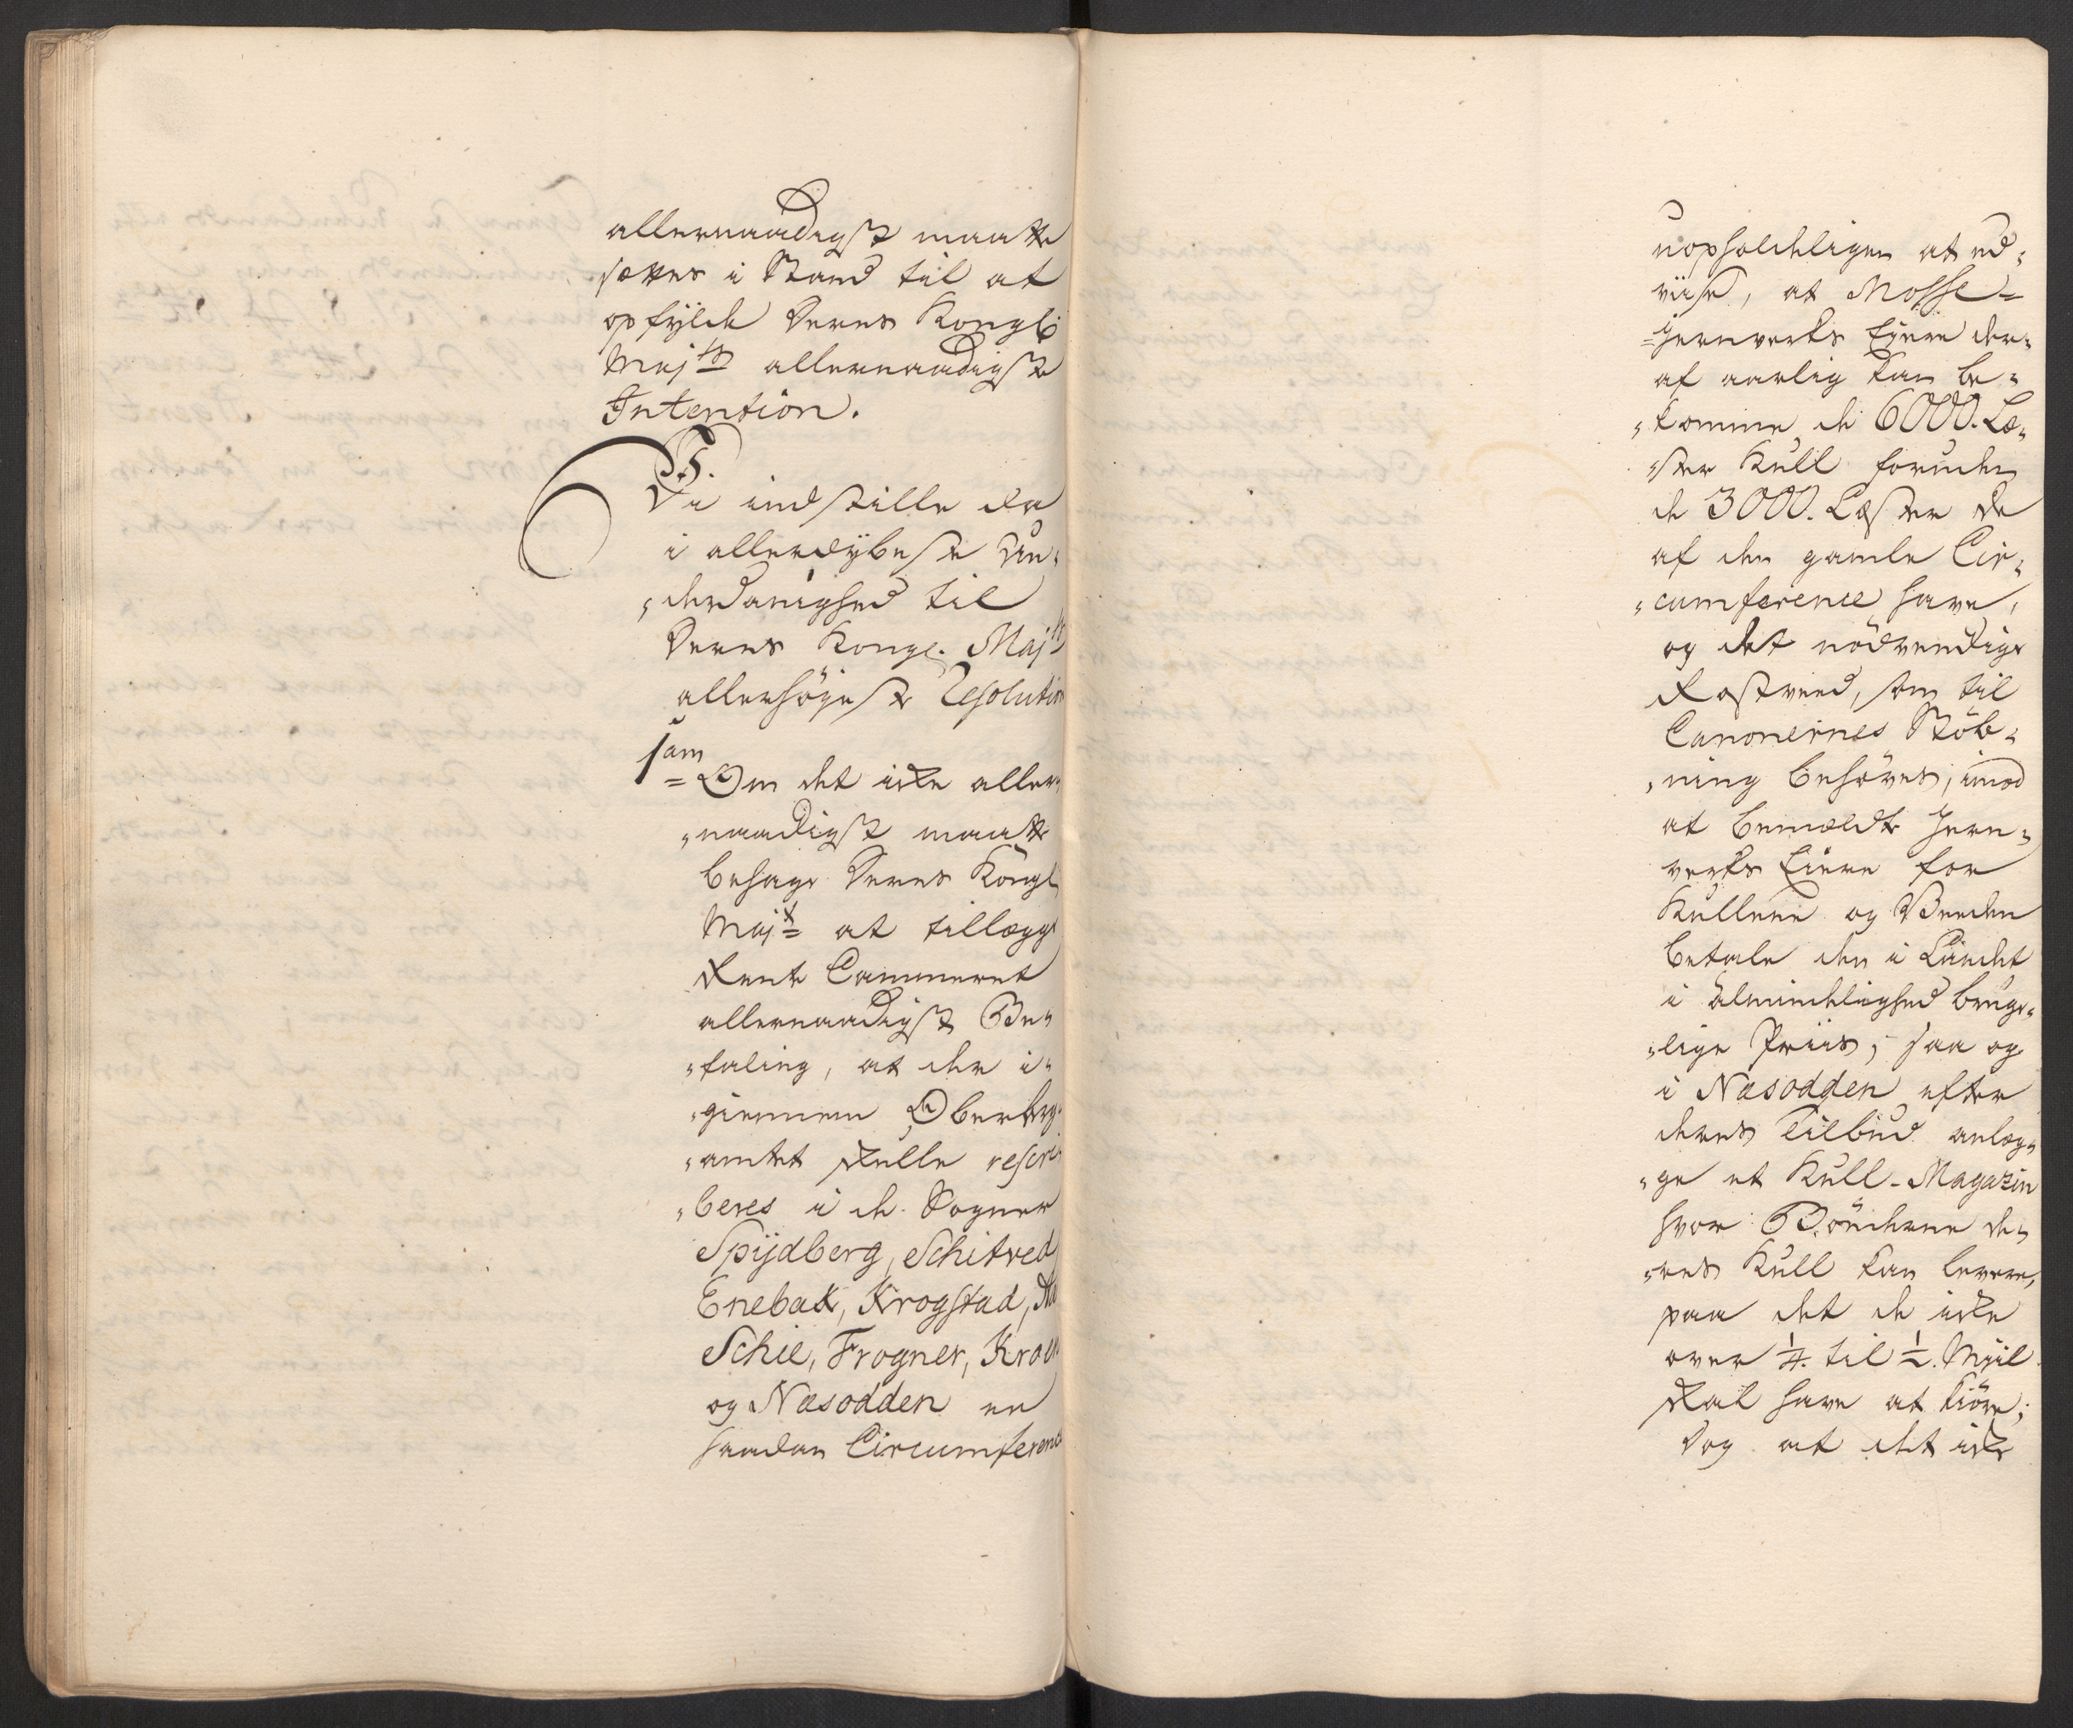 allernaadigst maatte
sættes i Stand til at
opfylde Deres Kongl:
Majts allernaadigste
Intention.
Vi indstille da
i allerdybeste Un-
"derdanighed til
Deres Kongl. Majts
allerhöyeste Resolution
1am
= Om det icke aller-
"naadigst maatte
behage Deres Kongl
Majt at tillægge
Rente Cammeret
allernaadigst Be-
"faling, at der i-
"giennem Oberberg-
"amtet skulle rescri-
"beres i de Sogner
Spydberg, Schitved
Enebak, Krogstad,
Schie, Frogner, Kroer
og Næsodden en
saadan Circumference
uopholdeligen at ud-
viise, at Mosse=
=Jernverks Eyere der-
af aarlig kan be-
"komme de 6000. Læ-
"ster Kull foruden
de 3000. Læster de
af den gamle Cir-
"cumference have,
og det nödvendige
Rostveed, som til
Canonernes Stöb-
"ning behöves, imod
at bemældte Jern-
verks Eiere for
Kullene og Veeden
betale den i Landet
i almindelighed bruge-
"lige Priis, saa og
i Næsodden efter
deres Tilbud anlæg-
"ge et Kull-Magazin
hvor Bönderne de-
"res Kull kan levere,
paa det de icke
over 1/4. til 1/2. Miil
skal have at kiöre;
Dog at det icke